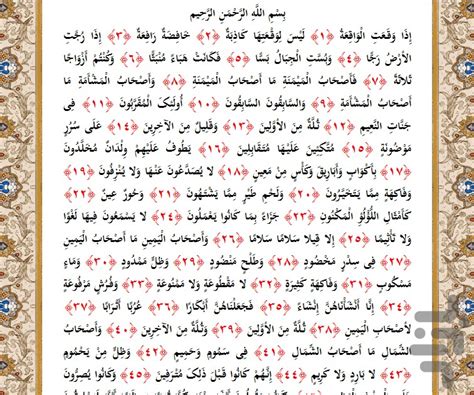 بِسْمِ اللَّهِ الرَّحْمَنِ الرَّحِيمِ
إِذَا وَقَعَتِ الْوَاقِعَةُ ﴿١﴾ لَيْسَ لِوَقْعَتِهَا كَاذِبَةٌ ﴿٢﴾ خَافِضَةٌ رَافِعَةٌ ﴿٣﴾ إِذَا رُجَّتِ
الْأَرْضُ رَجًّا ﴿٤﴾ وَبُسَّتِ الْجِبَالُ بَسًّا ﴿٥﴾ فَكَانَتْ هَبَاءً مُنْبَثًّا ﴿٦﴾ وَكُنْتُمْ أَزْوَاجًا
ثَلَاثَةً ﴿٧﴾ فَأَصْحَابُ الْمَيْمَنَةِ مَا أَصْحَابُ الْمَيْمَنَةِ ﴿٨﴾ وَأَصْحَابُ الْمَشْأَمَةِ مَا
أَصْحَابُ الْمَشْأَمَةِ ﴿٩﴾ وَالسَّابِقُونَ السَّابِقُونَ ﴿١٠﴾ أُولَئِكَ الْمُقَرَّبُونَ ﴿١١﴾ فِي
جَنَّاتِ النَّعِيمِ ﴿١٢﴾ ثُلَّةٌ مِنَ الْأَوَّلِينَ ﴿١٣﴾ وَقَلِيلٌ مِنَ الْآخِرِينَ ﴿١٤﴾ عَلَى سُرُرٍ
مَوْضُونَةٍ ﴿١٥﴾ مُتَّكِئِينَ عَلَيْهَا مُتَقَابِلِينَ ﴿١٦﴾ يَطُوفُ عَلَيْهِمْ وِلْدَانٌ مُخَلَّدُونَ
﴿١٧﴾ بِأَكْوَابٍ وَأَبَارِيقَ وَكَأْسٍ مِنْ مَعِينٍ ﴿١٨﴾ لَا يُصَدَّعُونَ عَنْهَا وَلَا يُنْزِفُونَ ﴿١٩﴾
وَفَاكِهَةٍ مِمَّا يَتَخَيَّرُونَ ﴿٢٠﴾ وَلَحْمِ طَيْرٍ مِمَّا يَشْتَهُونَ ﴿٢١﴾ وَحُورٌ عِينٌ ﴿٢٢﴾
كَأَمْثَالِ اللُّؤْلُؤِ الْمَكْنُونِ ﴿٢٣﴾ جَزَاءً بِمَا كَانُوا يَعْمَلُونَ ﴿٢٤﴾ لَا يَسْمَعُونَ فِيهَا لَغْوًا
وَلَا تَأْثِيمًا ﴿٢٥﴾ إِلَّا قِيلًا سَلَامًا سَلَامًا ﴿٢٦﴾ وَأَصْحَابُ الْيَمِينِ مَا أَصْحَابُ الْيَمِينِ
﴿٢٧﴾ فِي سِدْرٍ مَخْضُودٍ ﴿٢٨﴾ وَطَلْحٍ مَنْضُودٍ ﴿٢٩﴾ وَظِلٍّ مَمْدُودٍ ﴿٣٠﴾ وَمَاءٍ
مَسْكُوبٍ ﴿٣١﴾ وَفَاكِهَةٍ كَثِيرَةٍ ﴿٣٢﴾ لَا مَقْطُوعَةٍ وَلَا مَمْنُوعَةٍ ﴿٣٣﴾ وَفُرُشٍ مَرْفُوعَةٍ
﴿٣٤﴾ إِنَّا أَنْشَأْنَاهُنَّ إِنْشَاءً ﴿٣٥﴾ فَجَعَلْنَاهُنَّ أَبْكَارًا ﴿٣٦﴾ عُرُبًا أَتْرَابًا ﴿٣٧﴾
لِأَصْحَابِ الْيَمِينِ ﴿٣٨﴾ ثُلَّةٌ مِنَ الْأَوَّلِينَ ﴿٣٩﴾ وَثُلَّةٌ مِنَ الْآخِرِينَ ﴿٤٠﴾ وَأَصْحَابُ
الشِّمَالِ مَا أَصْحَابُ الشِّمَالِ ﴿٤١﴾ فِي سَمُومٍ وَحَمِيمٍ ﴿٤٢﴾ وَظِلٍّ مِنْ يَحْمُومٍ ﴿٤٣﴾
لَا بَارِدٍ وَلَا كَرِيمٍ ﴿٤٤﴾ إِنَّهُمْ كَانُوا قَبْلَ ذَلِكَ مُتْرَفِينَ ﴿٤٥﴾ وَكَانُوا يُصِرُّونَ